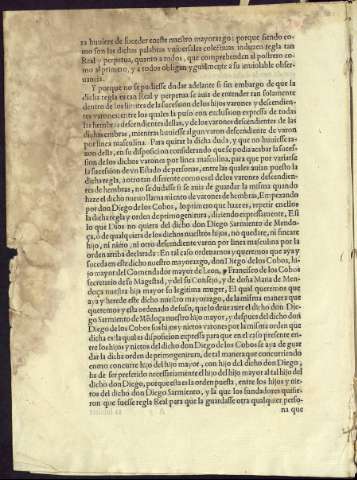 ra huuiere de suceder en este nuestro mayorazgo: porque siendo co-
mo son las dichas palabras vniuersales colectiuas inducen regla tan
Real y perpetua, quanto a todos, que comprehenden al postrero co-
mo al primero, y a todos obligan ygualmente a su inuiolable obser-
uancia.
Y porque no se pudiesse dudar adelante si sin embargo de que la
dicha regla era tan Real y perpetua se auia de entender tan solamente
dentro de los limites de la sucesion de los hijos varones y descendien-
tes varones: entre los quales la puso con exclusion expressa de todas
las hembras descendientes dellas, y de los varones descendientes de las
dichas hembras, mientras huuiesse algun varon descendiente de varon
por linea masculina. Para quitar la dicha duda, y que no huuiesse ra-
zon della, en su disposicion considerando que se podia acabar la suces-
sion de los dichos varones por linea masculina, para que por variarse
la sucession de vn Estado de personas, entre las quales auian puesto la
dicha regla, a otro tan diferente como es el de los varones descendien-
tes de hembras, no se dudasse si se auia de guardar la misma quando
haze el dicho nueuo llamamiento de varones de hembras, Empeçando
por don Diego de los Cobos, lo primero que haze es, repetir en ellos
la dicha regla y orden de primogenitura, diziendo expressamente, E si
lo que Dios no quiera del dicho don Diego Sarmiento de Mendo-
ça, ò de qualquiera de los dichos nuestros hijos, no quedare, ni fincare
hijo, ni nieto, ni otro descendiente varon por linea masculina por la
orden arriba declarada: En tal caso ordenamos y queremos que aya y
suceda en este dicho nuestro mayorazgo, don Diego de los Cobos, hi-
jo mayor del Comendador mayor de Leon, y Francisco de los Cobos
secretario de su Magestad, y del su Consejo, y de doña Maria de Men-
doça nuestra hija mayor su legitima muger, El qual queremos que
aya y herede este dicho nuestro mayorazgo, de la misma manera que
queremos y esta ordenado de suso, que lo deue auer el dicho don Die-
go Sarmiento de Mẽdoça nuestro hijo mayor, y despues del dicho don
Diego de los Cobos sus hijos y nietos varones por la misma orden que
dicha es: la qual es disposicion expressa para que en el caso presente en-
tre los hijos y nietos del dicho don Diego de los Cobos se aya de guar-
dar la dicha orden de primogenitura, de tal manera que concurriendo
como concurre hijo del hijo mayor, con hijo del dicho don Diego,
ha de ser preferido necessariamente el hijo del hijo mayor al tal hijo del
dicho don Diego, porque esta es la orden puesta, entre los hijos y nie-
tos del dicho don Diego Sarmiento, y la que los fundadores quisie-
ron que fuesse regla Real para que la guardasse otra qualquier perso-
na que